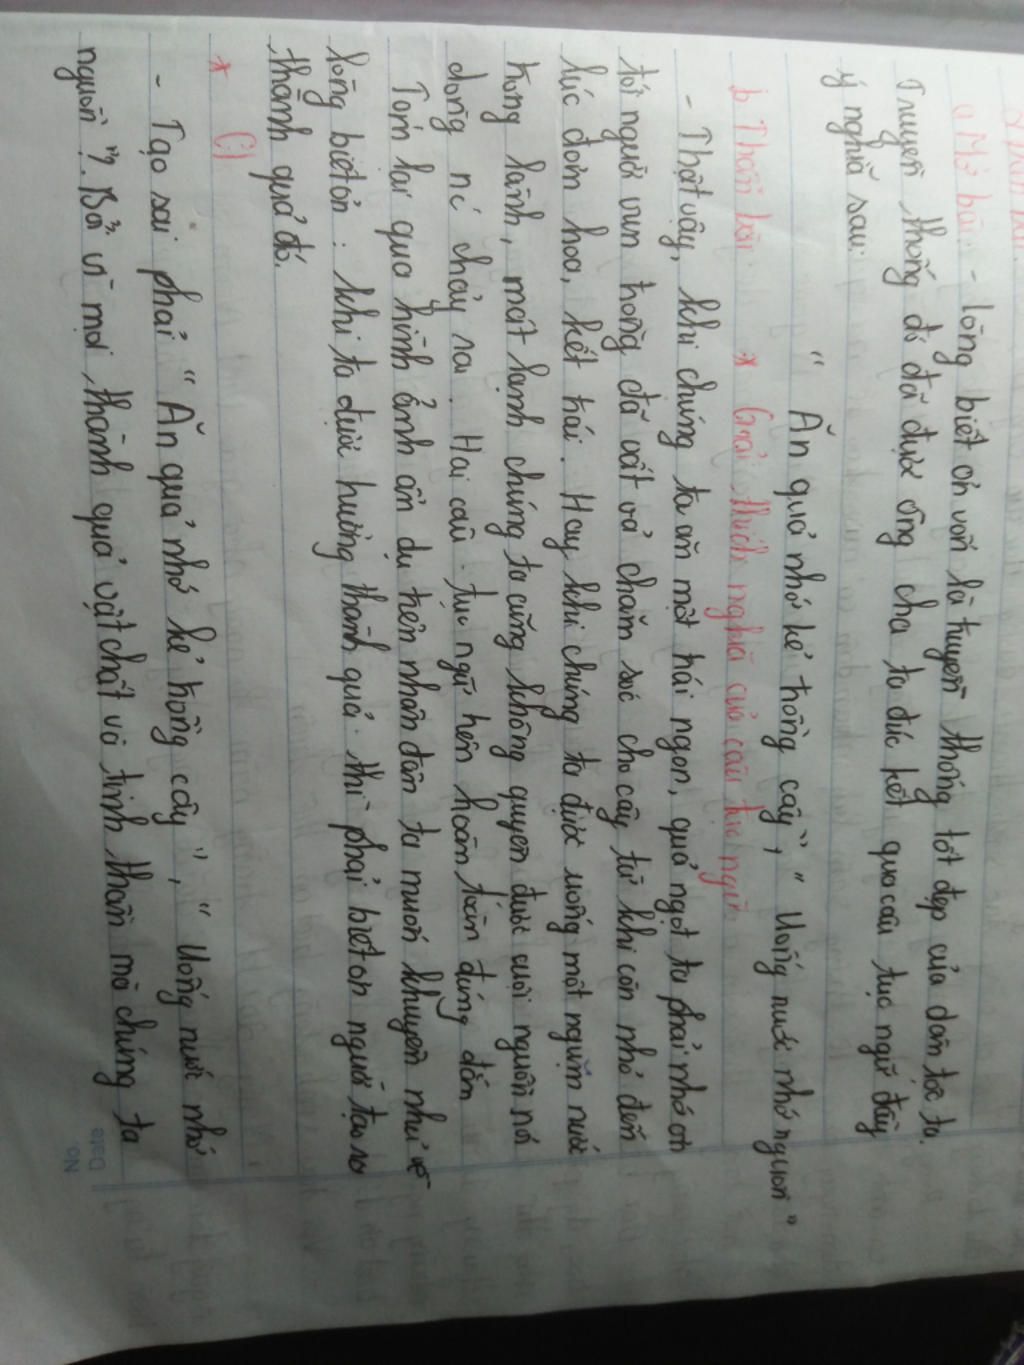 a Mở bài: - lòng biết ơn vốn là truyền thống tốt đẹp của dân tộc ta.
Truyền thống đó đã được ông cha ta đúc kết qua câu tục ngữ đầy
ý nghĩa sau:
" Ăn quả nhớ kẻ trồng cây", " Uống nước nhớ nguồn"
b Thân bài * Giải thích nghĩa của câu tục ngữ
- Thật vậy, khi chúng ta ăn một trái ngon, quả ngọt ta phải nhớ ơn
tới người vun trồng đã vất vả chăm sóc cho cây từ khi còn nhỏ đến
lúc đơm hoa, kết trái. Hay khi chúng ta được uống một ngụm nước
trong lành, mát lạnh chúng ta cũng không quyen được cuội nguồn nơi
dòng nc chảy ra. Hai câu tục ngữ trên hoàn toàn đúng đắn
Tóm lại qua hình ảnh ẩn dụ trên nhân dân ta muốn khuyên nhủ về
lòng biết ơn: khi ta được hưởng thành quả thì phải biết ơn người tạo ra
thành quả đó.
* C)
- Tạo sai phải " Ăn quả nhớ kẻ trồng cây", " Uống nước nhớ
nguồn"?. Bởi vì mọi thành quả vật chất và tinh thần mà chúng ta
Date
No